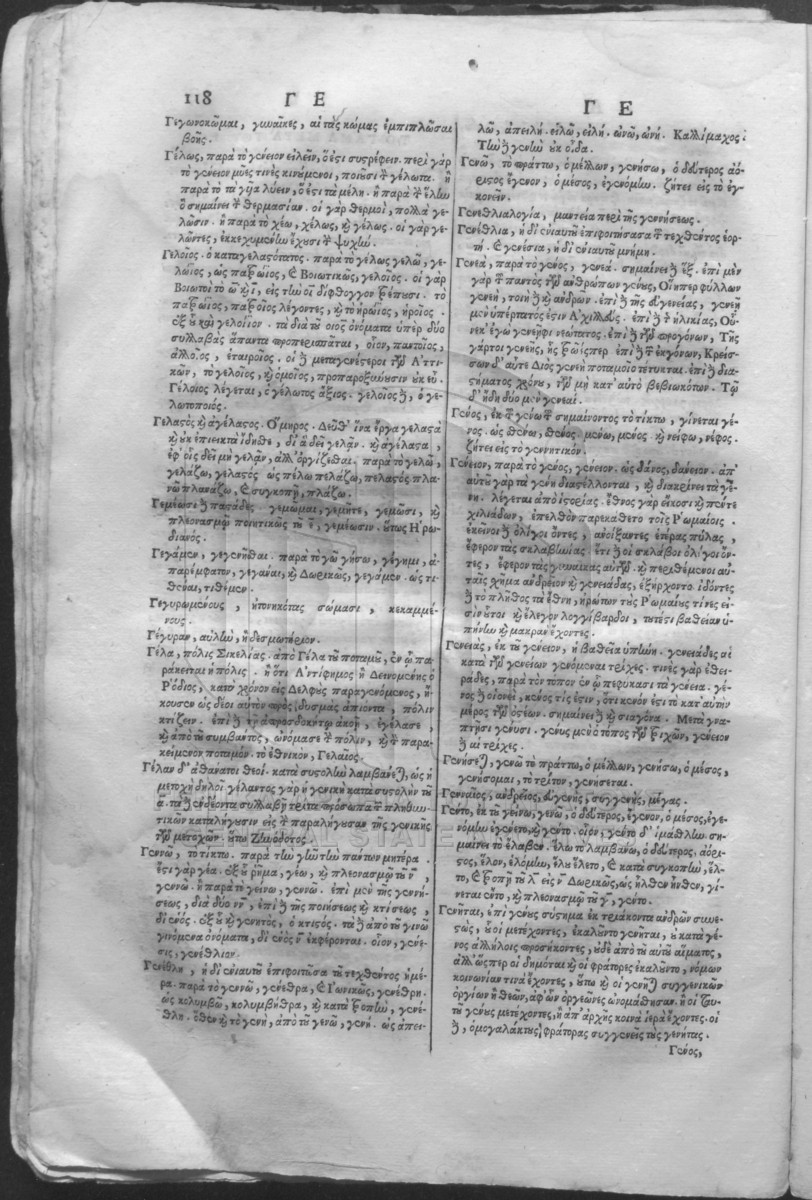 118 Γ Ε
Γεγωνοκῶμαι, γυναῖκες, αἱ τὰς κώμας ἐμπιπλῶσαι
βοῆς.
Γέλως, παρὰ τὸ γένειον εἱλεῖν, ὅ ἐστι συστρέφειν. περὶ γὰρ
τὸ γένειον μῦες τινὲς κινούμενοι, ποιοῦσι τὸν γέλωτα. ἢ
παρὰ τὸ τὰ γῖα λύειν, ὅ ἐστι τὰ μέλη. ἢ παρὰ τὴν ἕλην
ὃ σημαίνει τὴν θερμασίαν. οἱ γὰρ θερμοὶ, πολλὰ γε-
λῶσιν. ἢ παρὰ τὸ χέω, χέλως, καὶ γέλως. οἱ γὰρ γε-
λῶντες, ἐκκεχυμένην ἔχουσι τὴν ψυχήν.
Γελοῖος. ὁ καταγελαστότατος. παρὰ τὸ γέλως γελῶ, γε-
λώϊος, ὡς πατρώϊος, καὶ Βοιωτικῶς, γελοῖος. οἱ γὰρ
Βοιωτοὶ τὸ ω καὶ ι, εἰς τὴν οι δίφθογγον τρέπουσι. τὸ
πατρώϊος, πατροῖος λέγοντες, καὶ τὸ ἡρώϊος, ἡροῖος.
ἐξ οὗ καὶ γελοίϊον. τὰ διὰ τοῦ οιος ὀνόματα ὑπὲρ δύο
συλλαβὰς ἅπαντα προπερισπᾶται, οἷον, παντοῖος,
ἀλλοῖος, ἑταιροῖος. οἱ δὲ μεταγενέστεροι τῶν Ἀττι-
κῶν, τὸ γελοῖος, καὶ ὁμοῖος, προπαροξύνουσιν οὐκ εὖ.
Γέλοιος λέγεται, ὁ γέλωτος ἄξιος. γελοῖος δὲ, ὁ γε-
λωτοποιός.
Γελαστὸς καὶ ἀγέλαστος. Ὅμηρος. Δεῦθ' ἵνα ἔργα γελαστὰ
καὶ οὐκ ἐπιεικτὰ ἴδηθε, δι' ἃ δεῖ γελᾶν. καὶ ἀγέλαστα,
ἐφ' οἷς δεῖ μὴ γελᾶν, ἀλλ' ὀργίζεσθαι. παρὰ τὸ γελῶ,
γελάζω, γελαστὸς ὡς πελῶ πελάζω, πελαστὸς πλα-
νῶ πλανάζω, καὶ συγκοπῇ, πλάζω.
πλεονασμῷ ποιητικῶς τοῦ ν, γεμέωσιν. οὕτως Ἡρω-
διανός.
Γεγάμεν, γεγενῆσθαι. παρὰ τὸ γῶ γήσω, γέγημι, ἀ-
παρέμφατον, γεγάναι, καὶ Δωρικῶς, γεγάμεν. ὡς τι-
θέναι, τιθέμεν.
Γεγυρωμένους, ἡπονηκότας σώμασι, κεκαμμέ-
νους.
Γέγυραν, αὐλὴν, ἢ δεσμωτήριον.
Γέλα, πόλις Σικελίας. ἀπὸ Γέλα τοῦ ποταμοῦ, ἐν ᾧ πα-
ράκειται ἡ πόλις. ἢ ὅτι Ἀντίφημος ἢ Δεινομένης ὁ
Ῥόδιος, κατὰ χρόνον εἰς Δελφοὺς παραγενόμενος, ἤ-
κουσεν ὡς δέοι αὐτὸν πρὸς δυσμὰς ἀπιόντα, πόλιν
κτίζειν. ἐπὶ δὲ τῇ ἀπροσδοκήτῳ ἀκοῇ, ἐγέλασε,
καὶ ἀπὸ τοῦ συμβάντος, ὠνόμασε τὴν πόλιν, καὶ τὸν παρα-
κείμενον ποταμόν. τὸ ἐθνικὸν, Γελαῖος.
Γέλαν δ' ἀθάνατοι θεοί. κατὰ συστολὴν λαμβάνεται, ὡς ἡ
μετοχὴ δηλοῖ γέλαντος γὰρ ἡ γενικὴ κατὰ συστολὴν τοῦ
α. τὰ δὲ ἐνδέοντα συλλαβῇ τρίτα πρόσωπα τῶν πληθυν-
τικῶν καταλήγουσιν εἰς τὴν παραλήγουσαν τῆς γενικῆς
τῶν μετοχῶν. οὕτω Ζηνόδοτος.
Γεννῶ, τὸ τίκτω. παρὰ τὴν γῆν τὴν πάντων μητέρα.
ἔστι γὰρ γέα. ἐξ οὗ ῥῆμα, γέω, καὶ πλεονασμῷ τοῦ ν,
γεννῶ. ἢ παρὰ τὸ γείνω, γενῶ. ἐπὶ μὲν τῆς γεννή-
σεως, διὰ δύο νν, ἐπὶ δὲ τῆς ποιήσεως καὶ κτίσεως,
δι' ἑνός. ἐξ οὗ καὶ γενητὸς, ὁ κτιστός. τὰ δὲ ἀπὸ τοῦ γινῶ
γινόμενα ὀνόματα, δι' ἑνὸς ν ἐκφέρονται. οἷον, γένε-
σις, γενέθλιον.
Γενέθλη, ἡ δι' ἐνιαυτοῦ ἐπιφοιτῶσα τοῦ τεχθέντος ἡμέ-
ρα. παρὰ τὸ γενῶ, γενέθρα, καὶ Ἰωνικῶς, γενέθρη.
ὡς κολυμβῶ, κολυμβήθρα, καὶ κατὰ τροπὴν, γενέ-
θλη. ὅθεν καὶ τὸ γενὴ, ἀπὸ τοῦ γενῶ, γενή. ὡς ἀπει-
Γ Ε
λῶ, ἀπειλή. εἰλῶ, εἰλή. ὠνῶ, ὠνή. Καλλίμαχος.
Τὴν δὲ γενὴν οὐκ οἶδα.
Γενῶ, τὸ πράττω, ὁ μέλλων, γενήσω, ὁ δεύτερος ἀό-
ριστος ἔγενον, ὁ μέσος, ἐγενόμην. ζήτει εἰς τὸ ἐγ-
κονεῖν.
Γενεθλιαλογία, μαντεία περὶ τῆς γεννήσεως.
Γενέθλια, ἡ δι' ἐνιαυτοῦ ἐπιφοιτήσασα τοῦ τεχθέντος ἑορ-
τή. καὶ γενέσια, ἡ δι' ἐνιαυτοῦ μνήμη.
Γενεὰ, παρὰ τὸ γένος, γενεά. σημαίνει δὲ ἕξ. ἐπὶ μὲν
γὰρ τοῦ παντὸς τῶν ἀνθρώπων γένους, Οἵη περ φύλλων
γενεὴ, τοίη δὲ καὶ ἀνδρῶν. ἐπὶ δὲ τῆς εὐγενείας, γενεῇ
μὲν ὑπέρτατός ἐστιν Ἀχιλλεύς. ἐπὶ δὲ τῆς ἡλικίας, Οὕ-
νεκ' ἐγὼ γενεῆφι νεώτατος. ἐπὶ δὲ τῶν προγόνων, Τῆς
γάρ τοι γενεῆς, ἧς Τρωΐ περ ἐπὶ δὲ τῶν ἐκγόνων, Κρείσ-
σων δ' αὖτε Διὸς γενεὴ ποταμοῖο τέτυκται. ἐπὶ δὲ δια-
στήματος χρόνου, τῶν μὴ κατ' αὐτὸ βεβιωκότων. Τῷ
δ' ἤδη δύο μὲν γενεαί.
Γένος, ἐκ τοῦ γένω τοῦ σημαίνοντος τὸ τίκτω, γίνεται γέ-
νος. ὡς θένω, θένος. μένω, μένος. καὶ νείφω, νέφος.
ζήτει εἰς τὸ γεννητικόν.
Γένειον, παρὰ τὸ γένος, γένειον. ὡς δάνος, δάνειον. ἀπ'
αὐτοῦ γὰρ τὰ γένη διαστέλλονται, καὶ διακρίνει τὰ γέ-
νη. λέγεται ἀπὸ ἱστορίας. ἔθνος γὰρ εἴκοσι καὶ πέντε
χιλιάδων, ἐπελθὸν παρεκάθετο τοῖς Ῥωμαίοις.
ἐκεῖνοι δὲ ὀλίγοι ὄντες, ἀνοίξαντες ἑτέρας πύλας,
ἔφερον τὰς σκλαβουνίας ἔτι δὲ οἱ σκλάβοι ὀλίγοι ὄν-
τες, ἔφερον τὰς γυναῖκας αὐτῶν. καὶ περιθέμενοι αὐ-
ταῖς σχῆμα ἀνδρεῖον καὶ γενειάδας, ἐξήρχοντο. ἰδόντες
δὲ τὸ πλῆθος τὰ ἔθνη, ἠρώτων τοὺς Ῥωμαίους τίνες εἰ-
σὶν οὗτοι. καὶ ἔλεγον λογγίβαρδοι, τουτέστι βαθεῖαν ὑ-
πήνην καὶ μακρὰν ἔχοντες.
Γενειὰς, ἐκ τοῦ γένειον, ἡ βαθεῖα ὑπήνη. γενειάδες αἱ
κατὰ τῶν γενείων γενόμεναι τρίχες. τινὲς γὰρ ἐθει-
ράδες, παρὰ τὸν τόπον ἐν ᾧ πεφύκασι τὰ γένεια. γέ-
νος δὲ οἱονεὶ, κενός τις ἐστὶν, ὅτι κενόν ἐστι τὸ κατ' αὐτὴν
μέρος τῶν ὀστέων. σημαίνει δὲ καὶ σιαγόνα. Μετὰ γνα-
πτῇσι γένυσι. γένυς μὲν ὁ τόπος τῶν τριχῶν, γένειον
δὲ αἱ τρίχες.
Γενήσεται, γενῶ τὸ πράττω, ὁ μέλλων, γενήσω, ὁ μέσος,
γενήσομαι, τὸ τρίτον, γενήσεται.
Γενναῖος, ἀνδρεῖος, εὐγενὴς, συγγενὴς, μέγας.
Γέντο, ἐκ τοῦ γείνω, γενῶ, ὁ δεύτερος, ἔγενον, ὁ μέσος, ἐγε-
νόμην ἐγένετο, καὶ γέντο. οἷον, γέντο δ' ἱμάσθλην. ση-
μαίνει τὸ ἔλαβεν. ἕλω τὸ λαμβάνω, ὁ δεύτερος, ἀόρι-
στος, εἷλον, ἑλόμην, ἕλου ἕλετο, καὶ κατὰ συγκοπὴν, ἕλ-
το, καὶ τροπῇ τοῦ λ εἰς ν Δωρικῶς, ὡς ἦλθεν ἦνθεν, γί-
νεται ἕντο, καὶ πλεονασμῷ τοῦ γ, γέντο.
Γεννῆται, ἐπὶ γένους σύστημα ἐκ τριάκοντα ἀνδρῶν συνε-
στὼς, οὗ οἱ μετέχοντες, ἐκαλοῦντο γεννῆται, οὐ κατὰ γέ-
νος ἀλλήλοις προσήκοντες, οὐδὲ ἀπὸ τοῦ αὐτοῦ αἵματος,
ἀλλ' ὥσπερ οἱ δημόται καὶ οἱ φράτορες ἐκαλοῦντο, νόμων
κοινωνίαν τινὰ ἔχοντες, οὕτω καὶ οἱ γεννῆται συγγενικῶν
ὀργίων ἢ θεῶν, ἀφ' ὧν ὀργεῶνες ὠνομάσθησαν. ἢ οἱ ταὐ-
τοῦ γένους μετέχοντες, ἢ ἀπ' ἀρχῆς κοινὰ ἱερὰ ἔχοντες. οἱ
δὲ, ὁμογάλακτας, φράτορας συγγενεῖς τοὺς γεννήτας.
Γένος,